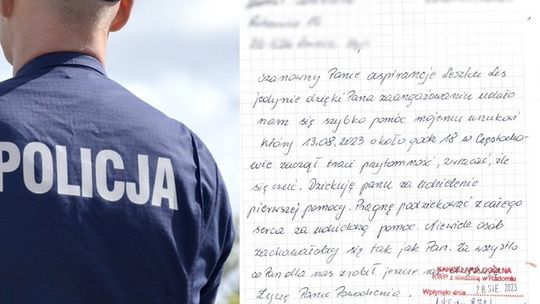 POLICJA
Szanowny Panie aspirancie Leszku Les
jedynie dzięki Pana zaangażowaniu udało
nam się szybko pomóc mojemu wnukowi
który 13.08.2023 około godz 18 w Częstocho-
wie zaczął tracić przytomność, zwracać, źle
się czuć. Dziękuję panu za udzielenie
pierwszej pomocy. Pragnę podziękować z całego
serca za udzieloną pomoc. Niewiele osób
zachowałoby się tak jak Pan. Za wszystko
co Pan dla nas zrobił jeszcze raz
Życzę Panu Powodzenia.
KANCELARIA OGÓLNA
KWP z siedzibą w Radomiu
Wpłynęło dnia 28 SIE. 2023